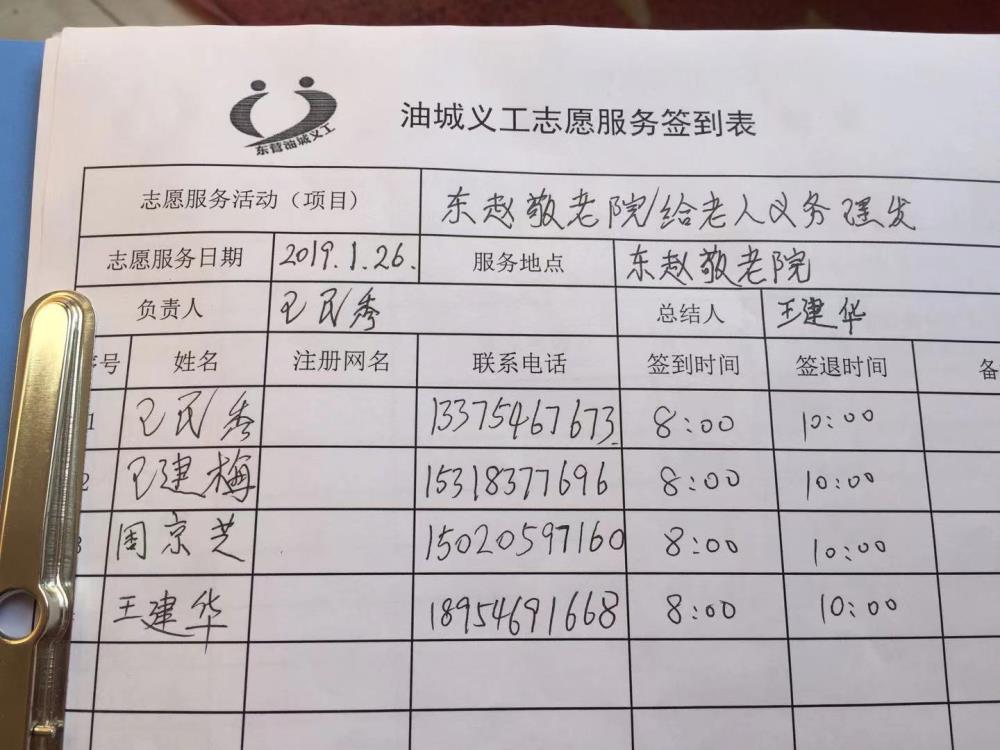 东营油城义工
油城义工志愿服务签到表
志愿服务活动（项目） 东赵敬老院/给老人义务理发
志愿服务日期 2019.1.26. 服务地点 东赵敬老院
负责人 王民秀 总结人 王建华
序号 姓名 注册网名 联系电话 签到时间 签退时间 备
1 王民秀 13375467673 8:00 10:00
2 王建梅 15318377696 8:00 10:00
3 周京芝 15020597160 8:00 10:00
王建华 18954691668 8:00 10:00